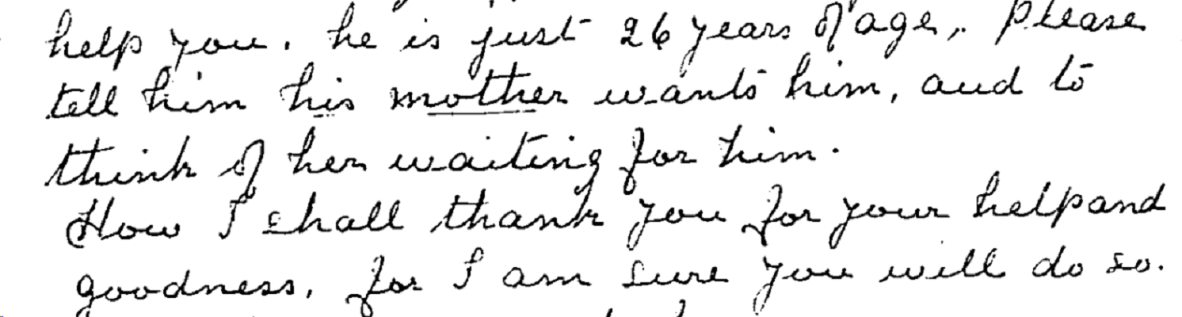 help you. he is just 26 years of age,. Please
tell him his mother wants him, and to
think of her waiting for him.
How I shall thank you for your help and
goodness, for I am sure you will do so.